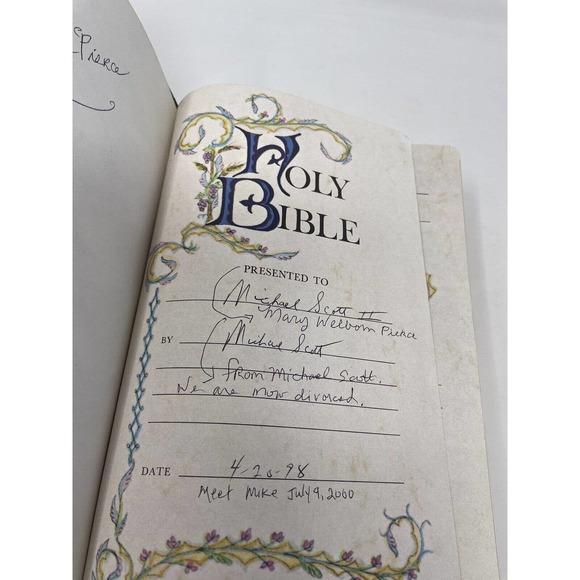 Pierce
HOLY
BIBLE
PRESENTED TO
Michael Scott II
Mary Welborn Pierce
BY Michael Scott
from Michael Scott.
We are now divorced.
DATE 4-20-98
Meet Mike July 9, 2000